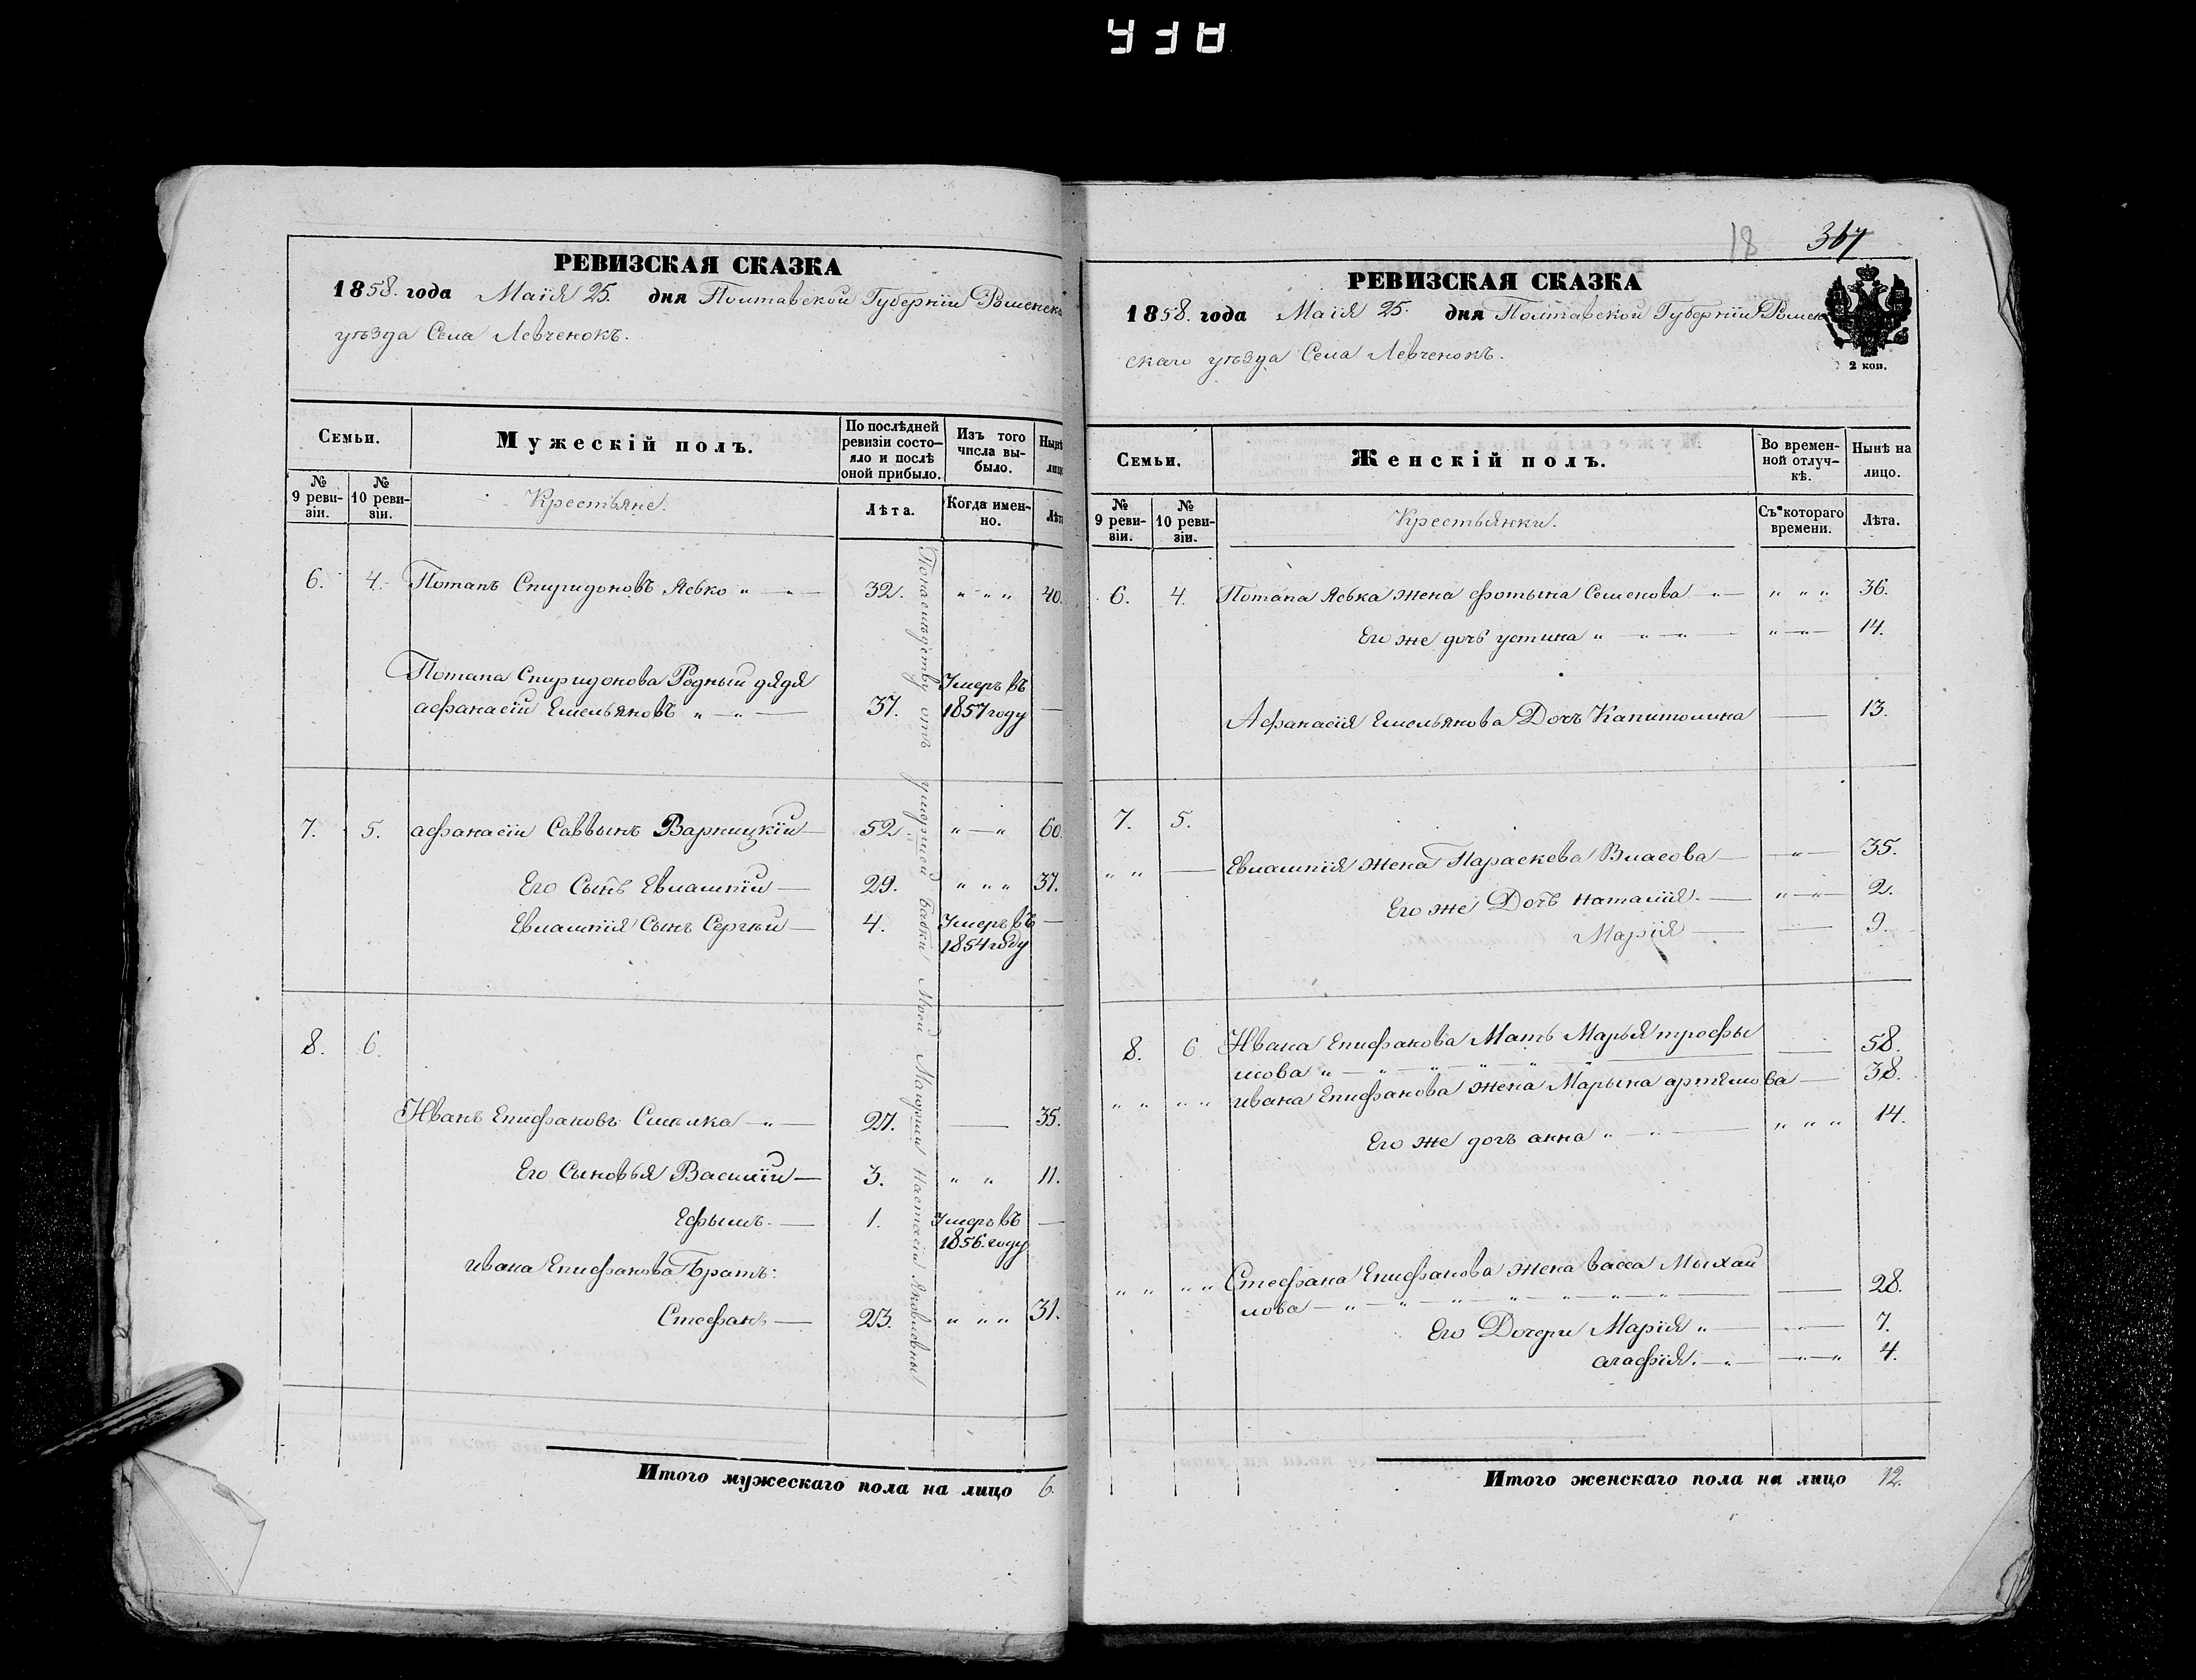 РЕВИЗСКАЯ СКАЗКА
1858. года Маія 25. дня Полтавской Губерніи Роменска
уѣзда Села Левченокъ.
Семьи.
Мужескій полъ.
По послѣдней ревизіи состо-
яло и послѣ оной прибыло.
Изъ того числа вы-
было.
Нынѣ
лицо
№ 9 реви-
зіи.
№ 10 реви-
зіи.
Крестьяне.
Лѣта.
Когда имен-
но.
Лѣта
6. 4. Потапъ Спиридоновъ Ясько " — " — 32. " " " 40.
Потапа Спиридонова Родный дядя
афанасій Емельяновъ " — " — 37. Умеръ въ 1857 году —
7. 5. афанасій Саввынъ Варницкій — 52. " — " 60.
Его Сынъ Евлампій — 29. " " " 37.
Евлампія Сынъ Сергѣй — 4. Умеръ въ 1854 году —
8. 6.
Иванъ Епифановъ — " — 27. — 35.
Его Сыновья Василій — 3. " " 11.
Ефымъ. — 1. Умеръ въ 1856. году —
ивана Епифанова Братъ:
Стефанъ — 23. " " " 31.
По наслѣдству отъ умершей бабки Моей Маіорши Настасіи Яковлевны
Итого мужескаго пола на лицо 6.
18 367
РЕВИЗСКАЯ СКАЗКА
1858. года Маія 25. дня Полтавской Губерніи Ромен
скаго уѣзда Села Левченокъ.
2 коп.
Семьи.
Женскій полъ.
Во времен-
ной отлуч-
кѣ.
Нынѣ на
лицо.
№ 9 реви-
зіи.
№ 10 реви-
зіи.
Крестьянки.
Съ котораго
времени.
Лѣта.
6. 4. Потапа Яська жена фотына Семенова " — " " " 36.
Его же дочь устина " — " — " — " — " — 14.
Афанасія Емельянова Дочь Капитолина — 13.
7. 5.
" " — Евлампія жена Параскева Власова — " — 35.
Его же Дочь наталія. — " — " — 2.
Марія — — 9.
8. 6 Ивана Епифанова Мать Марья трофы
мова " — " — " — " — " — 58.
" " " " ивана Епифанова жена Марына артемова — 38.
Его же дочь анна " — " — " " " 14.
" " " " Стефана Епифанова жена васса Мыхай
лова — " — " — " — " — " — " — " — 28.
Его Дочери Марія " — " — 7.
агафія. — " — " — " 4.
Итого женскаго пола на лицо 12.